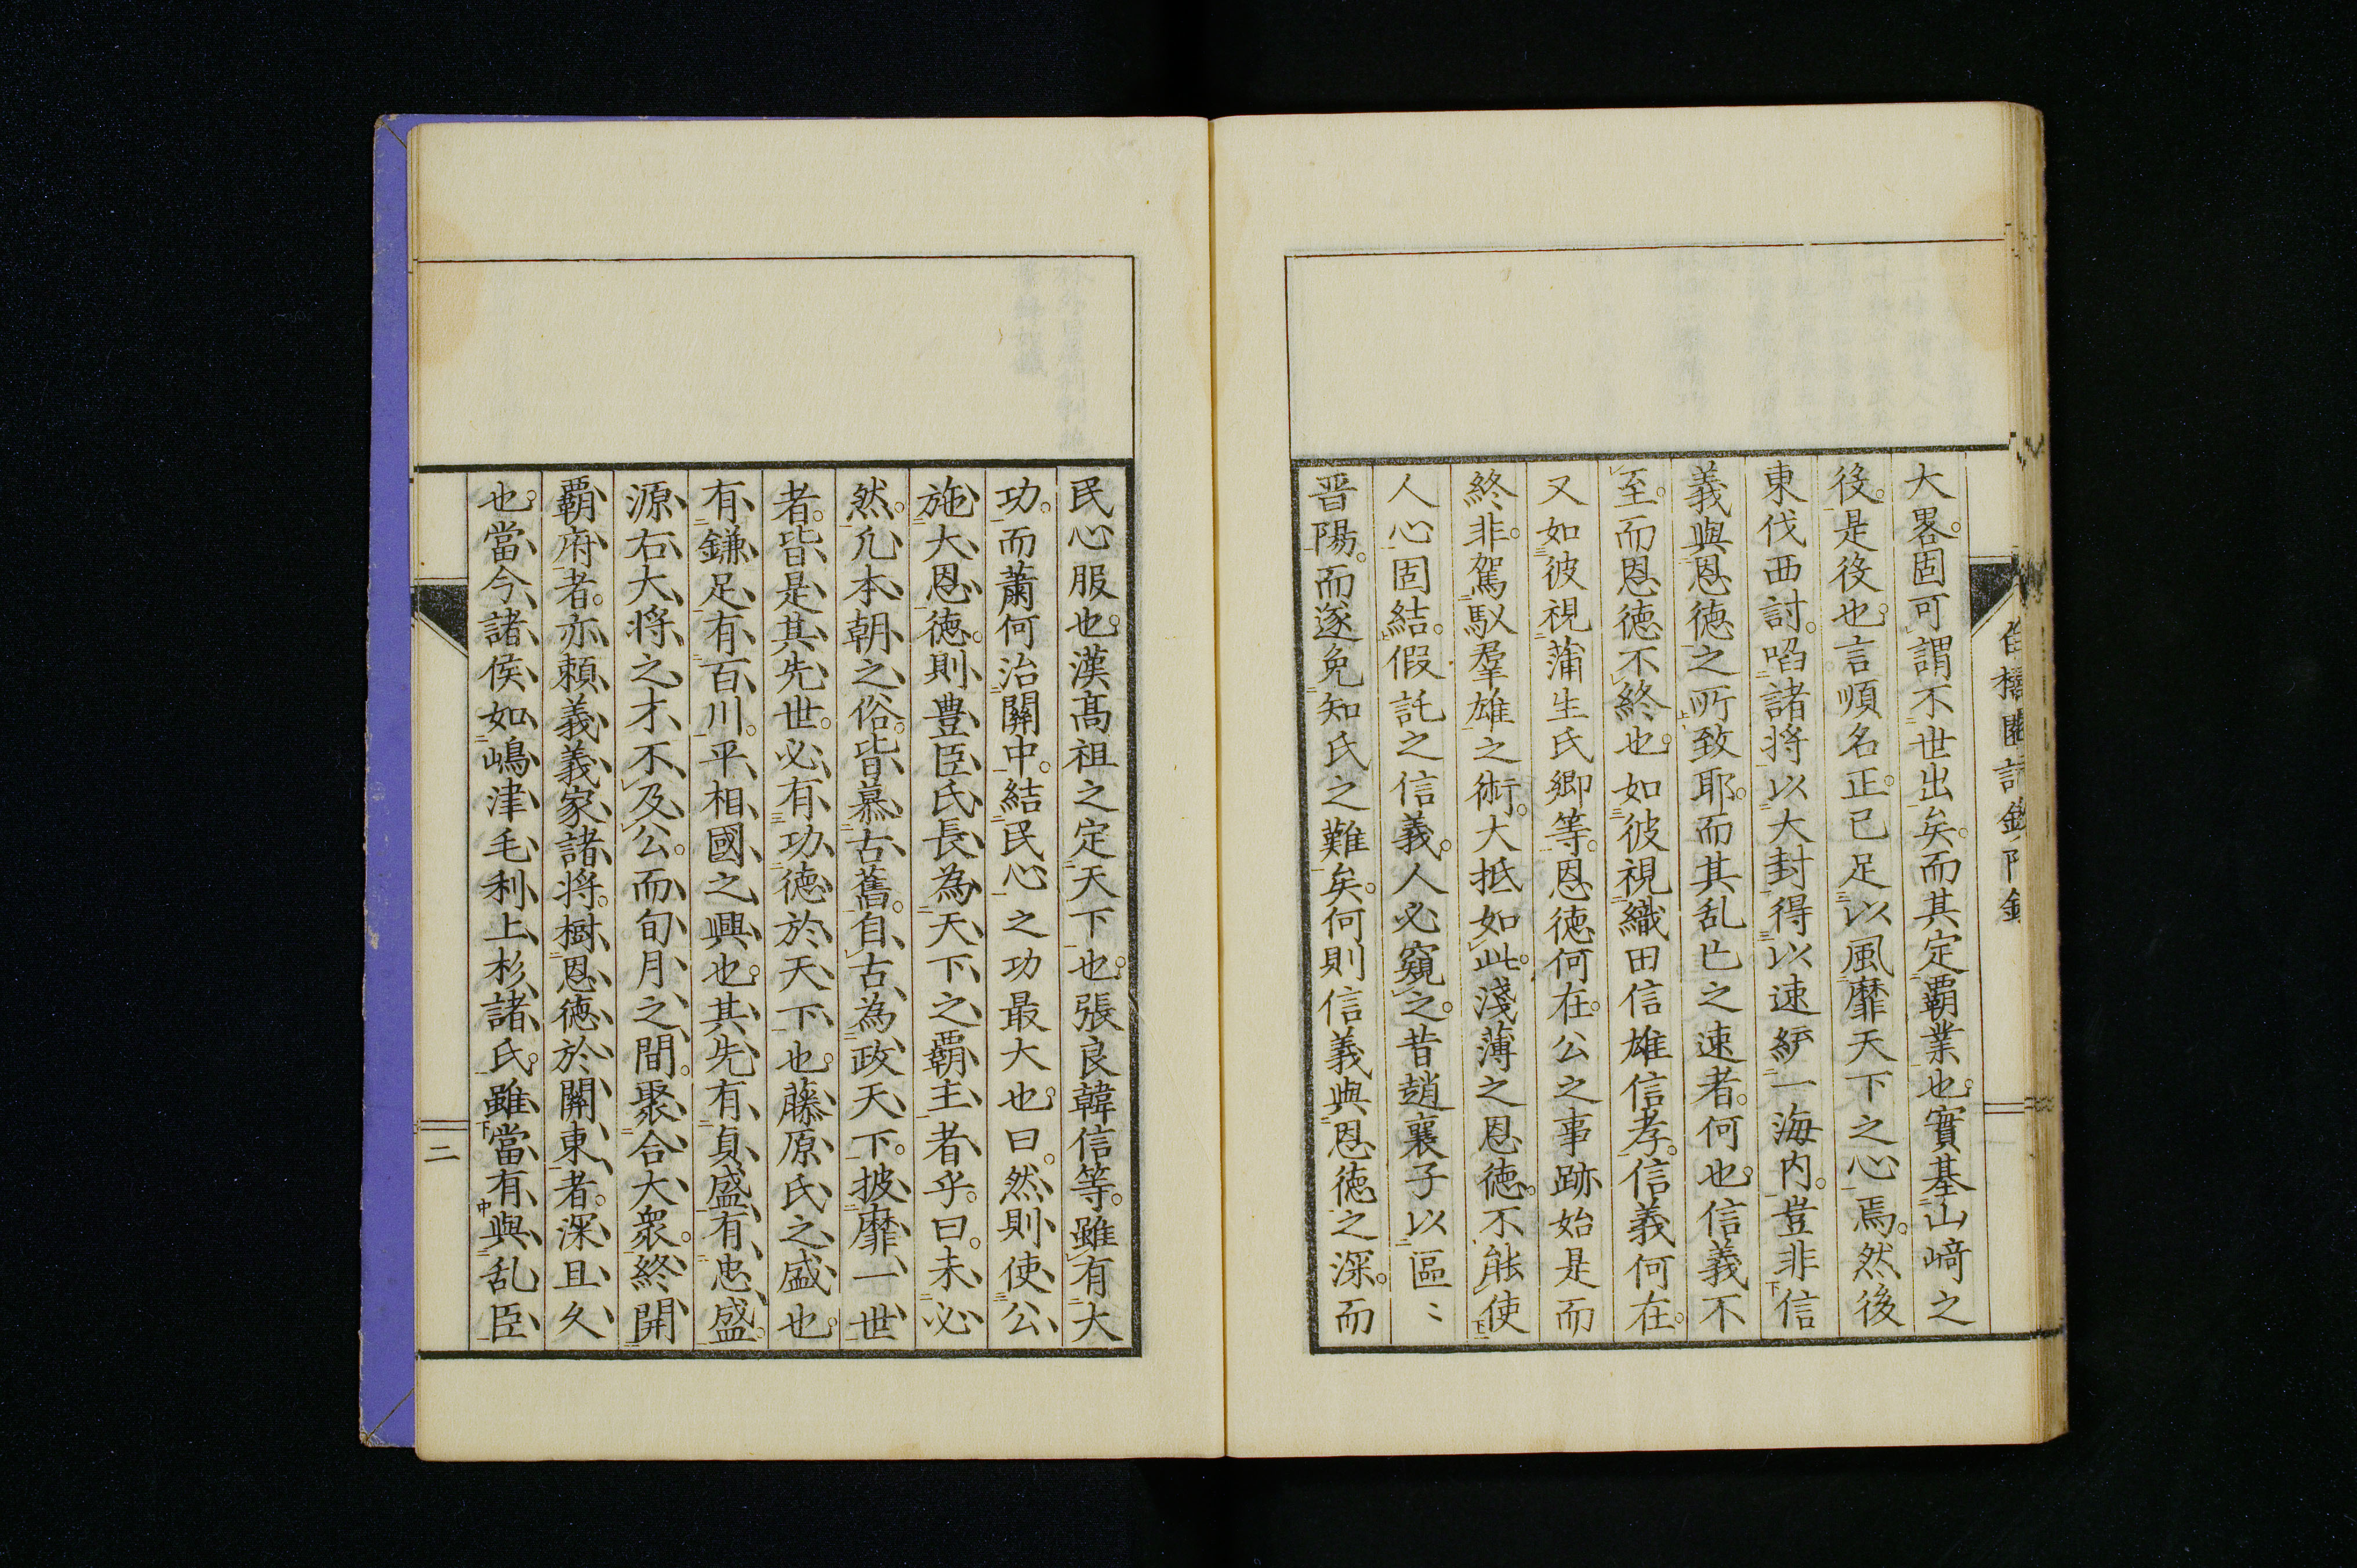 大畧。固可謂不世出矣。而其定覇業也。實基山﨑之
後。是役也。言順名正。已足以風靡天下之心焉。然後
東伐西討。啗諸将以大封得以速一海内。豈非信
義與恩徳之所致耶。而其乱亡之速者。何也。信義不
至。而恩徳不終也。如彼視織田信雄信孝。信義何在。
又如彼視蒲生氏郷等。恩徳何在。公之事跡始是而
終非。駕馭羣雄之術。大抵如此。淺薄之恩徳。不能使
人心固結。假託之信義。人必窺之。昔趙襄子以區〻
晋陽。而遂免知氏之難矣。何則信義與恩徳之深。而
民心服也。漢髙祖之定天下也。張良韓信等。雖有大
功。而蕭何治關中。結民心之功最大也。曰。然則使公
施大恩徳。則豊臣氏長為天下之覇主者乎。曰。未必
然。凢本朝之俗。皆慕古舊。自古為政天下。披靡一世
者。皆是其先世。必有功徳於天下也。藤原氏之盛也。
有鎌足有百川。平相國之興也。其先有貞盛有忠盛。
源右大将之才不及公。而旬月之間。聚合大衆。終開
覇府者。亦頼義義家諸将。樹恩徳於關東者。深且久
也。當今諸侯如嶋津毛利上杉諸氏。雖當有與乱臣
二